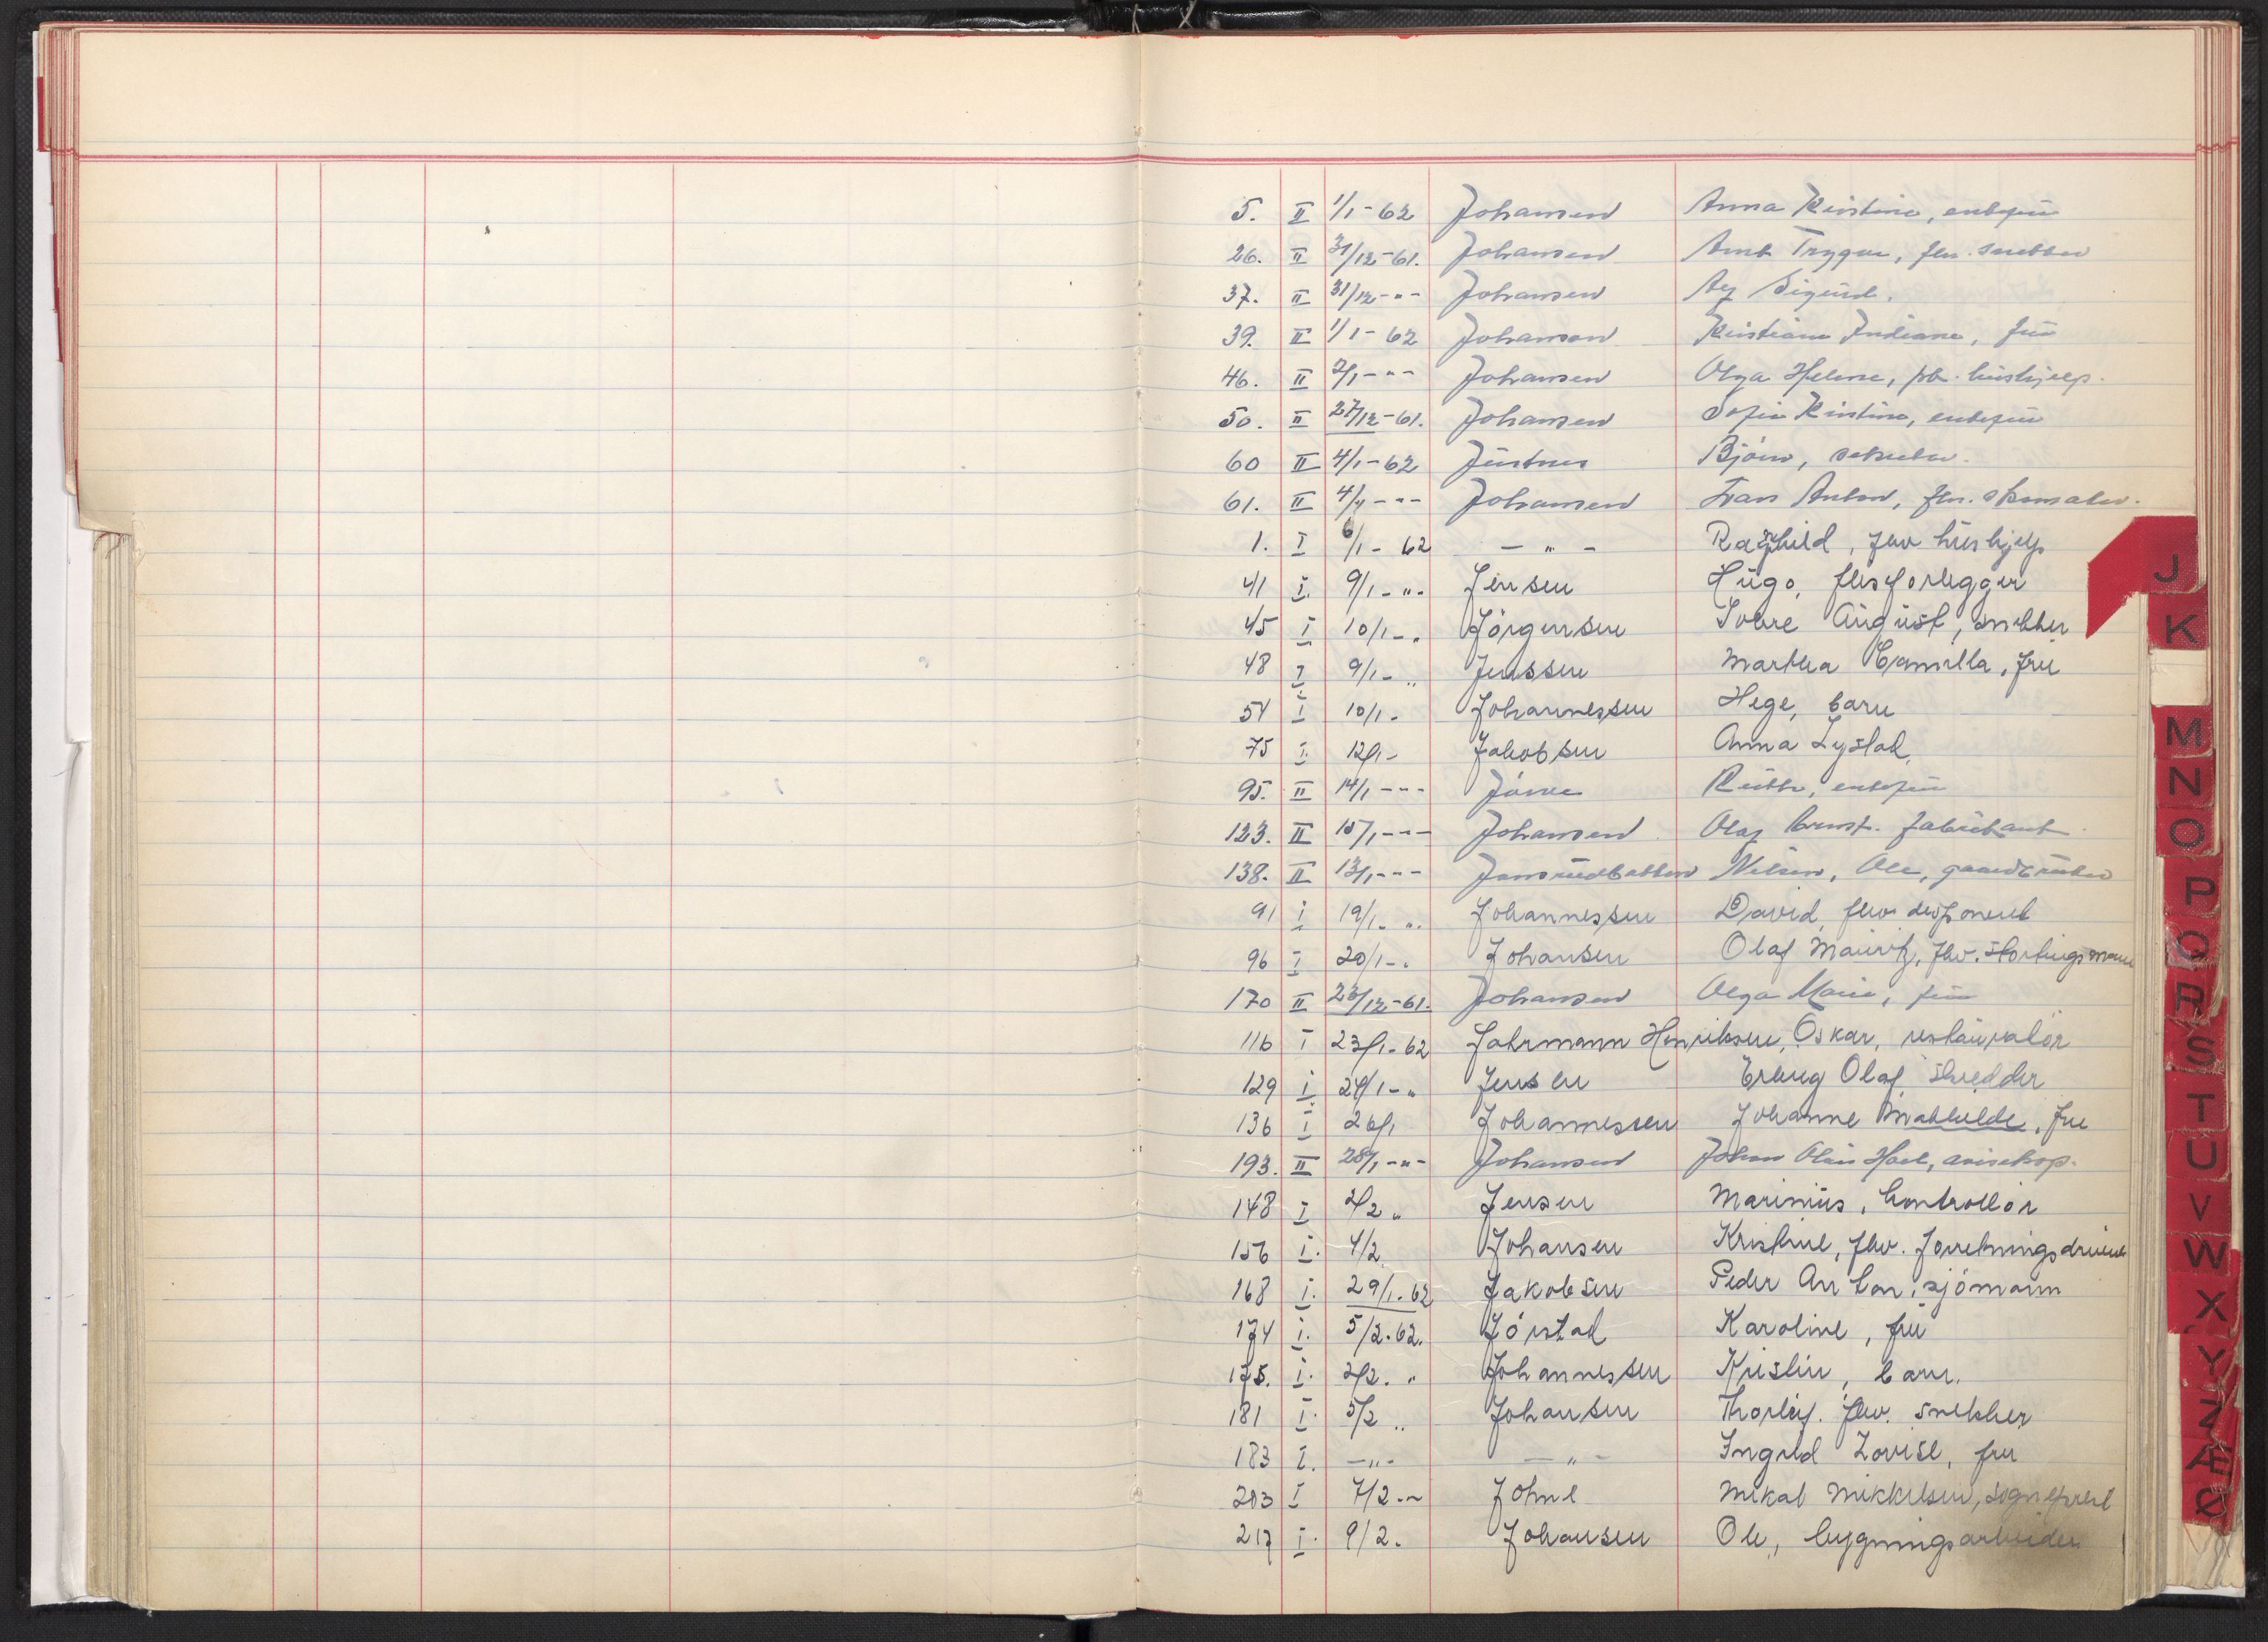 5. II 1/1-62 Johansen Anna Kristine, enkefrü
26. II 31/12-61. Johansen Arnt Trygve, fhv. snekker
37. II 31/12-"- Johansen Sigurd.
39. II 1/1-62 Johansen Kristiane Indiane, frü
46. II 2/1-"- Johansen Olga Helene, hüshjelp.
50. II 27/12-61. Johansen Sofie Kristine, enkefrü
60 II 4/1-62 Jüstnes Björn, sekretær.
61. II 4/1-"- Johansen Anton, fhv. skomaker.
1. I 6/1-62 -"- Ragnhild, fhv hüshjelp
41 I. 9/1-"- Jensen Hügo, flisforlegger
45 I 10/1-" Jörgensen Tobre Aügüst, snekker
48 I 9/1-" Jenssen Martha Camilla, frü
54 I 10/1- Johannessen Hege, barn
75 I. 12/1- Jakobsen Anna Lystad,
95. II 14/1-"- Rüth, enkefrü
123. II 15/1-"- Johansen Olaf fabrikant.
138. II 13/1-"- Jonsrüdbakken Nilsen, Ole, gaardbrüker
91 I 19/1-". Johannessen David, fhv disponent
96 I 20/1-" Johansen Olaf Mauritz, fhv. stortingsmann
170 II 23/12-61. Johansen Olga Marie, frü
116 I 23/1-62 Jahrmann Henriksen, Oskar, restauratör
129 I. 24/1-" Jensen Erling Olaf skredder
136 I 26/1 Johannessen Johanne Mathilde, Fru
193. II 28/1-"- Johansen John aviseksp.
148 I 2/2 " Jensen Marinius, kontrollör
156 I. 4/2. Johansen Kristine, fhv. forretningsdrivende
168 I. 29/1-62 Jakobsen Peder Anton, sjömann
174 I. 5/2-62. Jörstad Karoline, frü
175. I. 2/2. " Johannessen Kristin, barn.
181 I. 5/2 " Johansen Thorleif. fhv. snekker
183 I. -"- -"- Ingrid Lovise, fru
203 I 7/2-- Johne Mikal Mikkelsen, sogneprest
217 I. 9/2. Johansen Ole, bygningsarbeider
J
K
M
N
O
P
Q
R
S
T
U
V
W
X
Y
Z
Æ
Ø